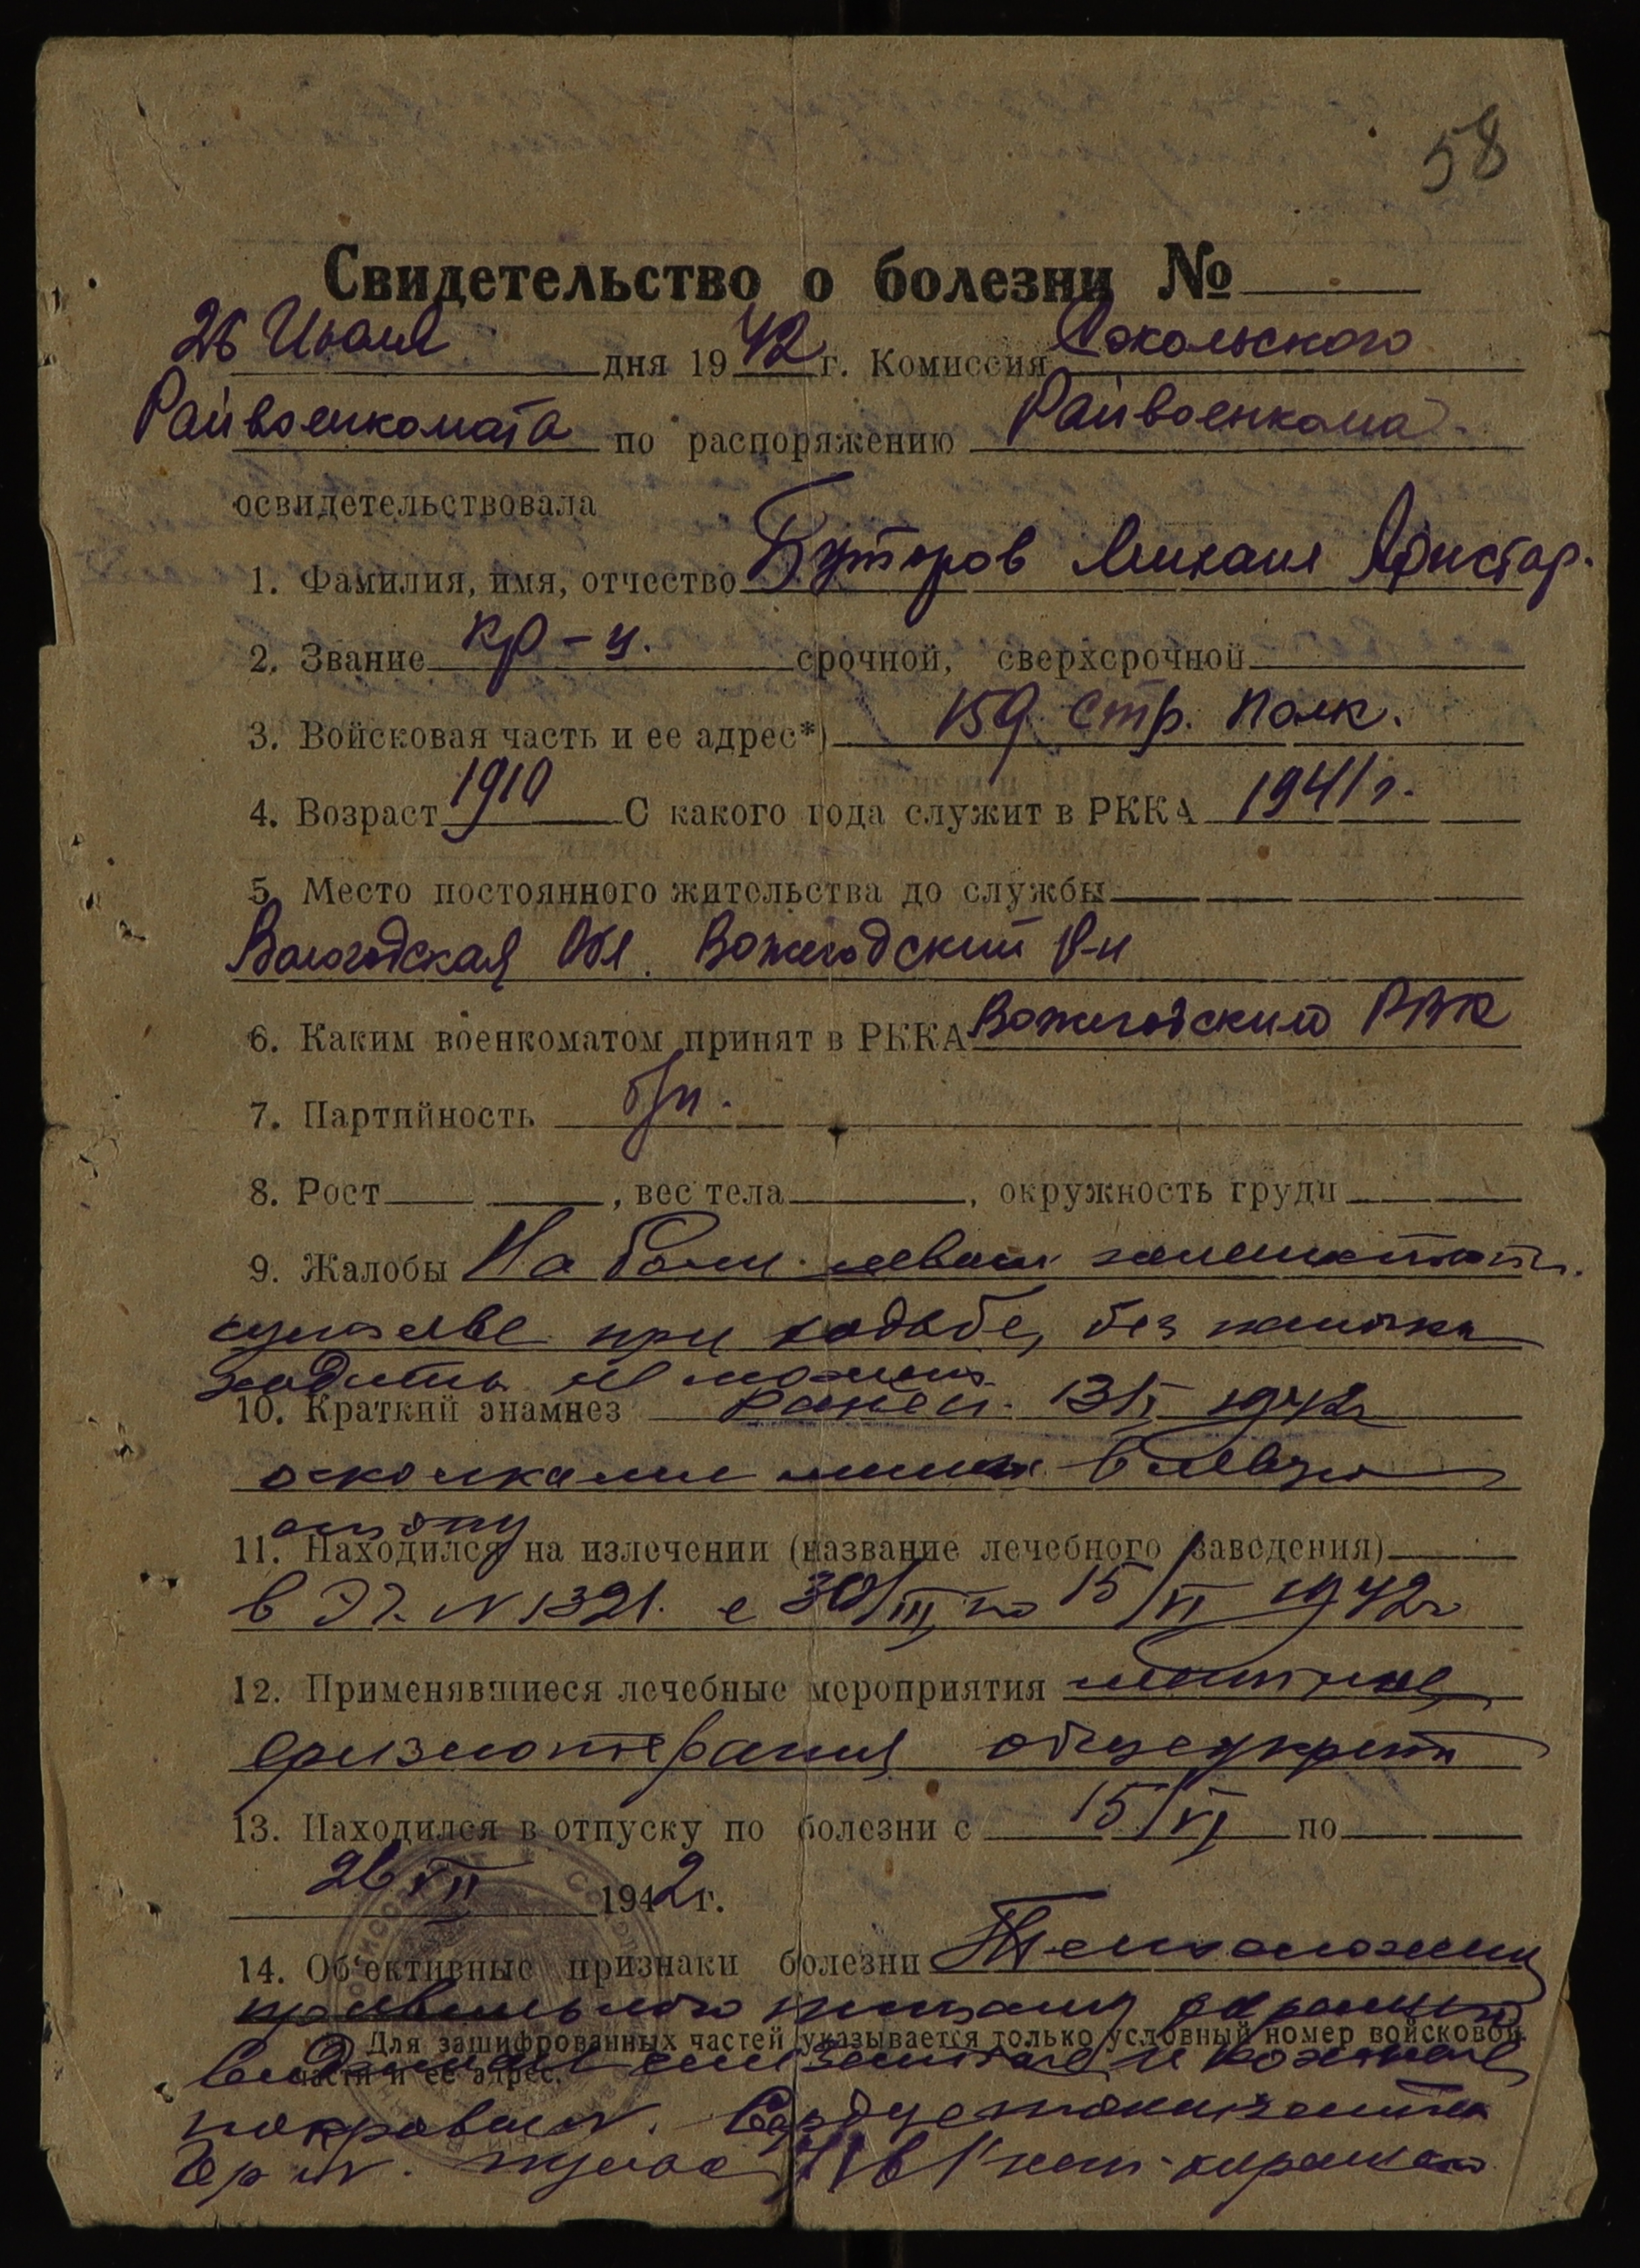 58
Свидетельство о болезни №
26 Июля дня 1942 г. Комиссия Сокольского
Райвоенкомата по распоряжению Райвоенкома
освидетельствовала
1. Фамилия, имя, отчество Буторов Михаил Аристар.
2. Звание кр-ц. срочной, сверхсрочной
3. Войсковая часть и ее адрес*) 159 стр. полк.
4. Возраст 1910 С какого года служит в РККА 1941 г.
5. Место постоянного жительства до службы
Вологодская обл. Вожегодский р-н
6. Каким военкоматом принят в РККА Вожегодским РВК
7. Партийность б/п.
8. Рост , вес тела , окружность груди
9. Жалобы На боли левом
суставе при ходьбе, без палочки
ходить не может
10. Краткий анамнез ранен 1942 г
осколками мины в левую
стопу
11. Находился на излечении (название лечебного заведения)
в Э.Г. N 1321. с 30/III по 15/VI 1942 г
12. Применявшиеся лечебные мероприятия
физиотерапия общеукреп
13. Находился в отпуску по болезни с 15/VI по
26 VII 1942 г.
14. Об'ективные признаки болезни Телосложения
правильного
*) Для зашифрованных частей указывается только условный номер войсковой
части и ее адрес.
видимые слизистые и кожные
покровы N. Сердце тоны чистые
Гр N.